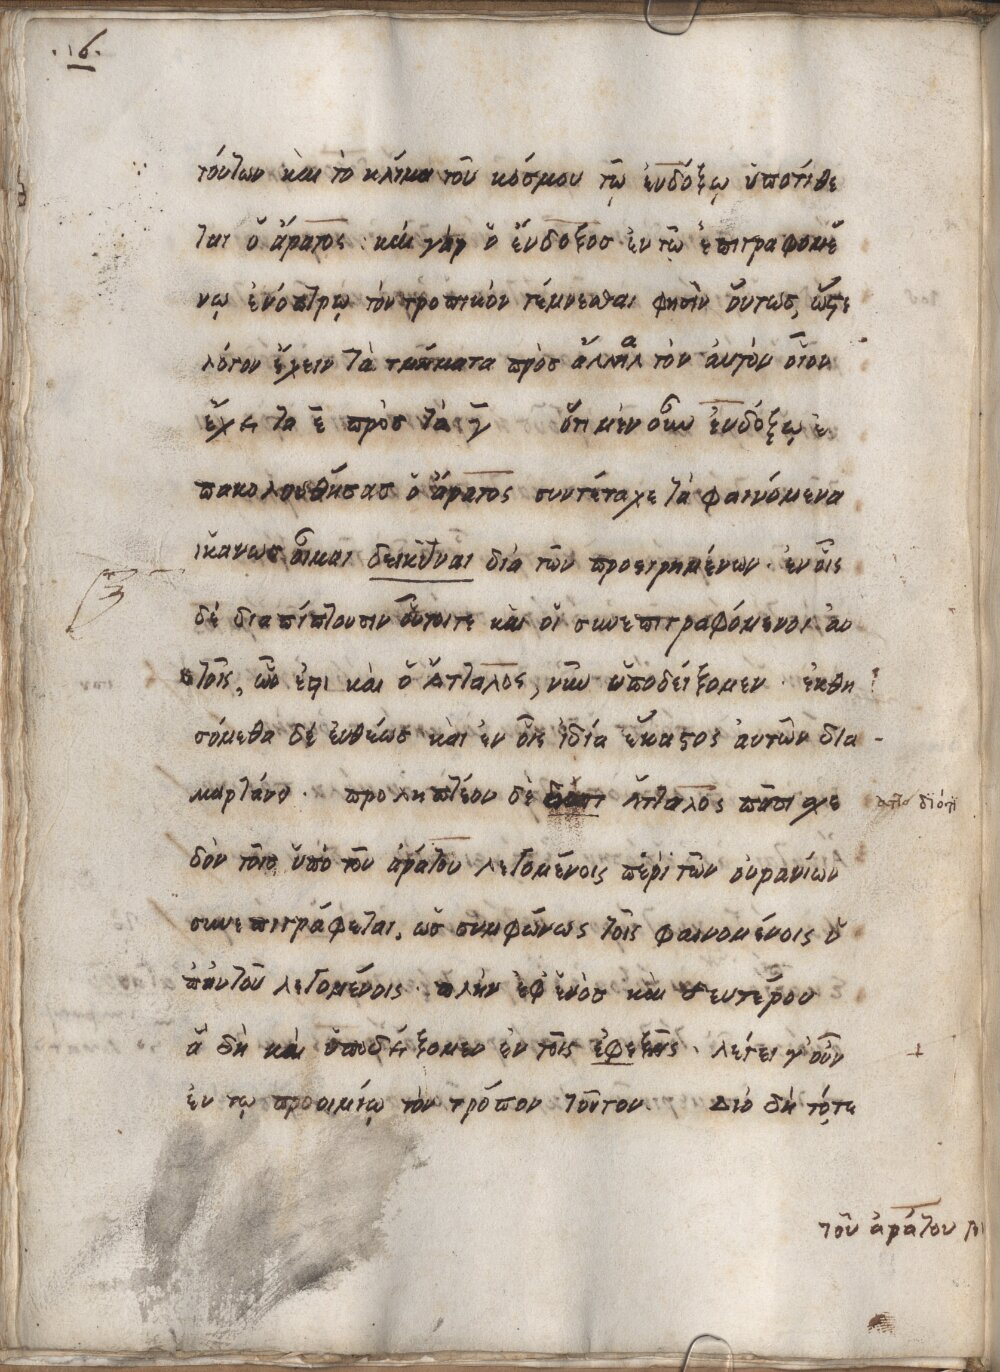 .16.
τούτων καὶ τὸ κλίμα τοῦ κόσμου τῷ ἐυδόξῳ ὑποτίθε
ται ὅ ἄρατος. καὶ γὰρ ὅ ἔυδοξοσ ἐν τῷ ἐπιγραφομέ
νῳ ἐνόπτρῳ τὸν τροπικὸν τέμνεσθαι φησὶν ὅυτωσ, ὥστε
λόγον ἔχειν τὰ τμήματα πρὸσ ἄλληλα τὸν ἀυτὸν οἷον
ἔχει τὰ ε̄ πρὸσ τὰ γ̄ ὅτι μὲν οὖν ἐυδόξῳ ἐ
πακολουθήσασ ὁ ἄρατος συντέταχε τὰ φαινόμενα
ἱκανωσ οἶμαι δεικνῦναι διὰ τῶν προειρημένων. ἐν οἷς
δὲ διαπίπτουσιν οὗτοιτε καὶ οἵ συνεπιγραφόμενοι ἀυ
τοῖς, ὧν ἐςι καὶ ὁ ἄτταλος, νῦν ὑποδείξομεν. ἐκθη
σόμεθα δὲ ἐυθέωσ καὶ ἐν οἷς ἰδία ἕκαςος ἀυτῶν δια-
μαρτάνει. προληπτέον δὲ διότι ἄτταλος πᾶσι χε
διότι
δὸν τοῖσ ὑπὸ τοῦ ἀράτου λεγομένοις περὶ τῶν ουρανίων
συνεπιγράφεται, ὡσ συμφώνως τοῖς φαινομένοις ὑ
π' ἀυτοῦ λεγομένοις. πλὴν ἐφ' ἑνὸσ καὶ δευτέρου
ἃ δὴ καὶ ὑποδείξομεν ἐν τοῖς ἐφεξῆς. λέγει γ' οὖν
ἐν τῳ προοιμίῳ τὸν τρόπον τοῦτον. Διὸ δὴ τό,τε
τοῦ ἀράτου